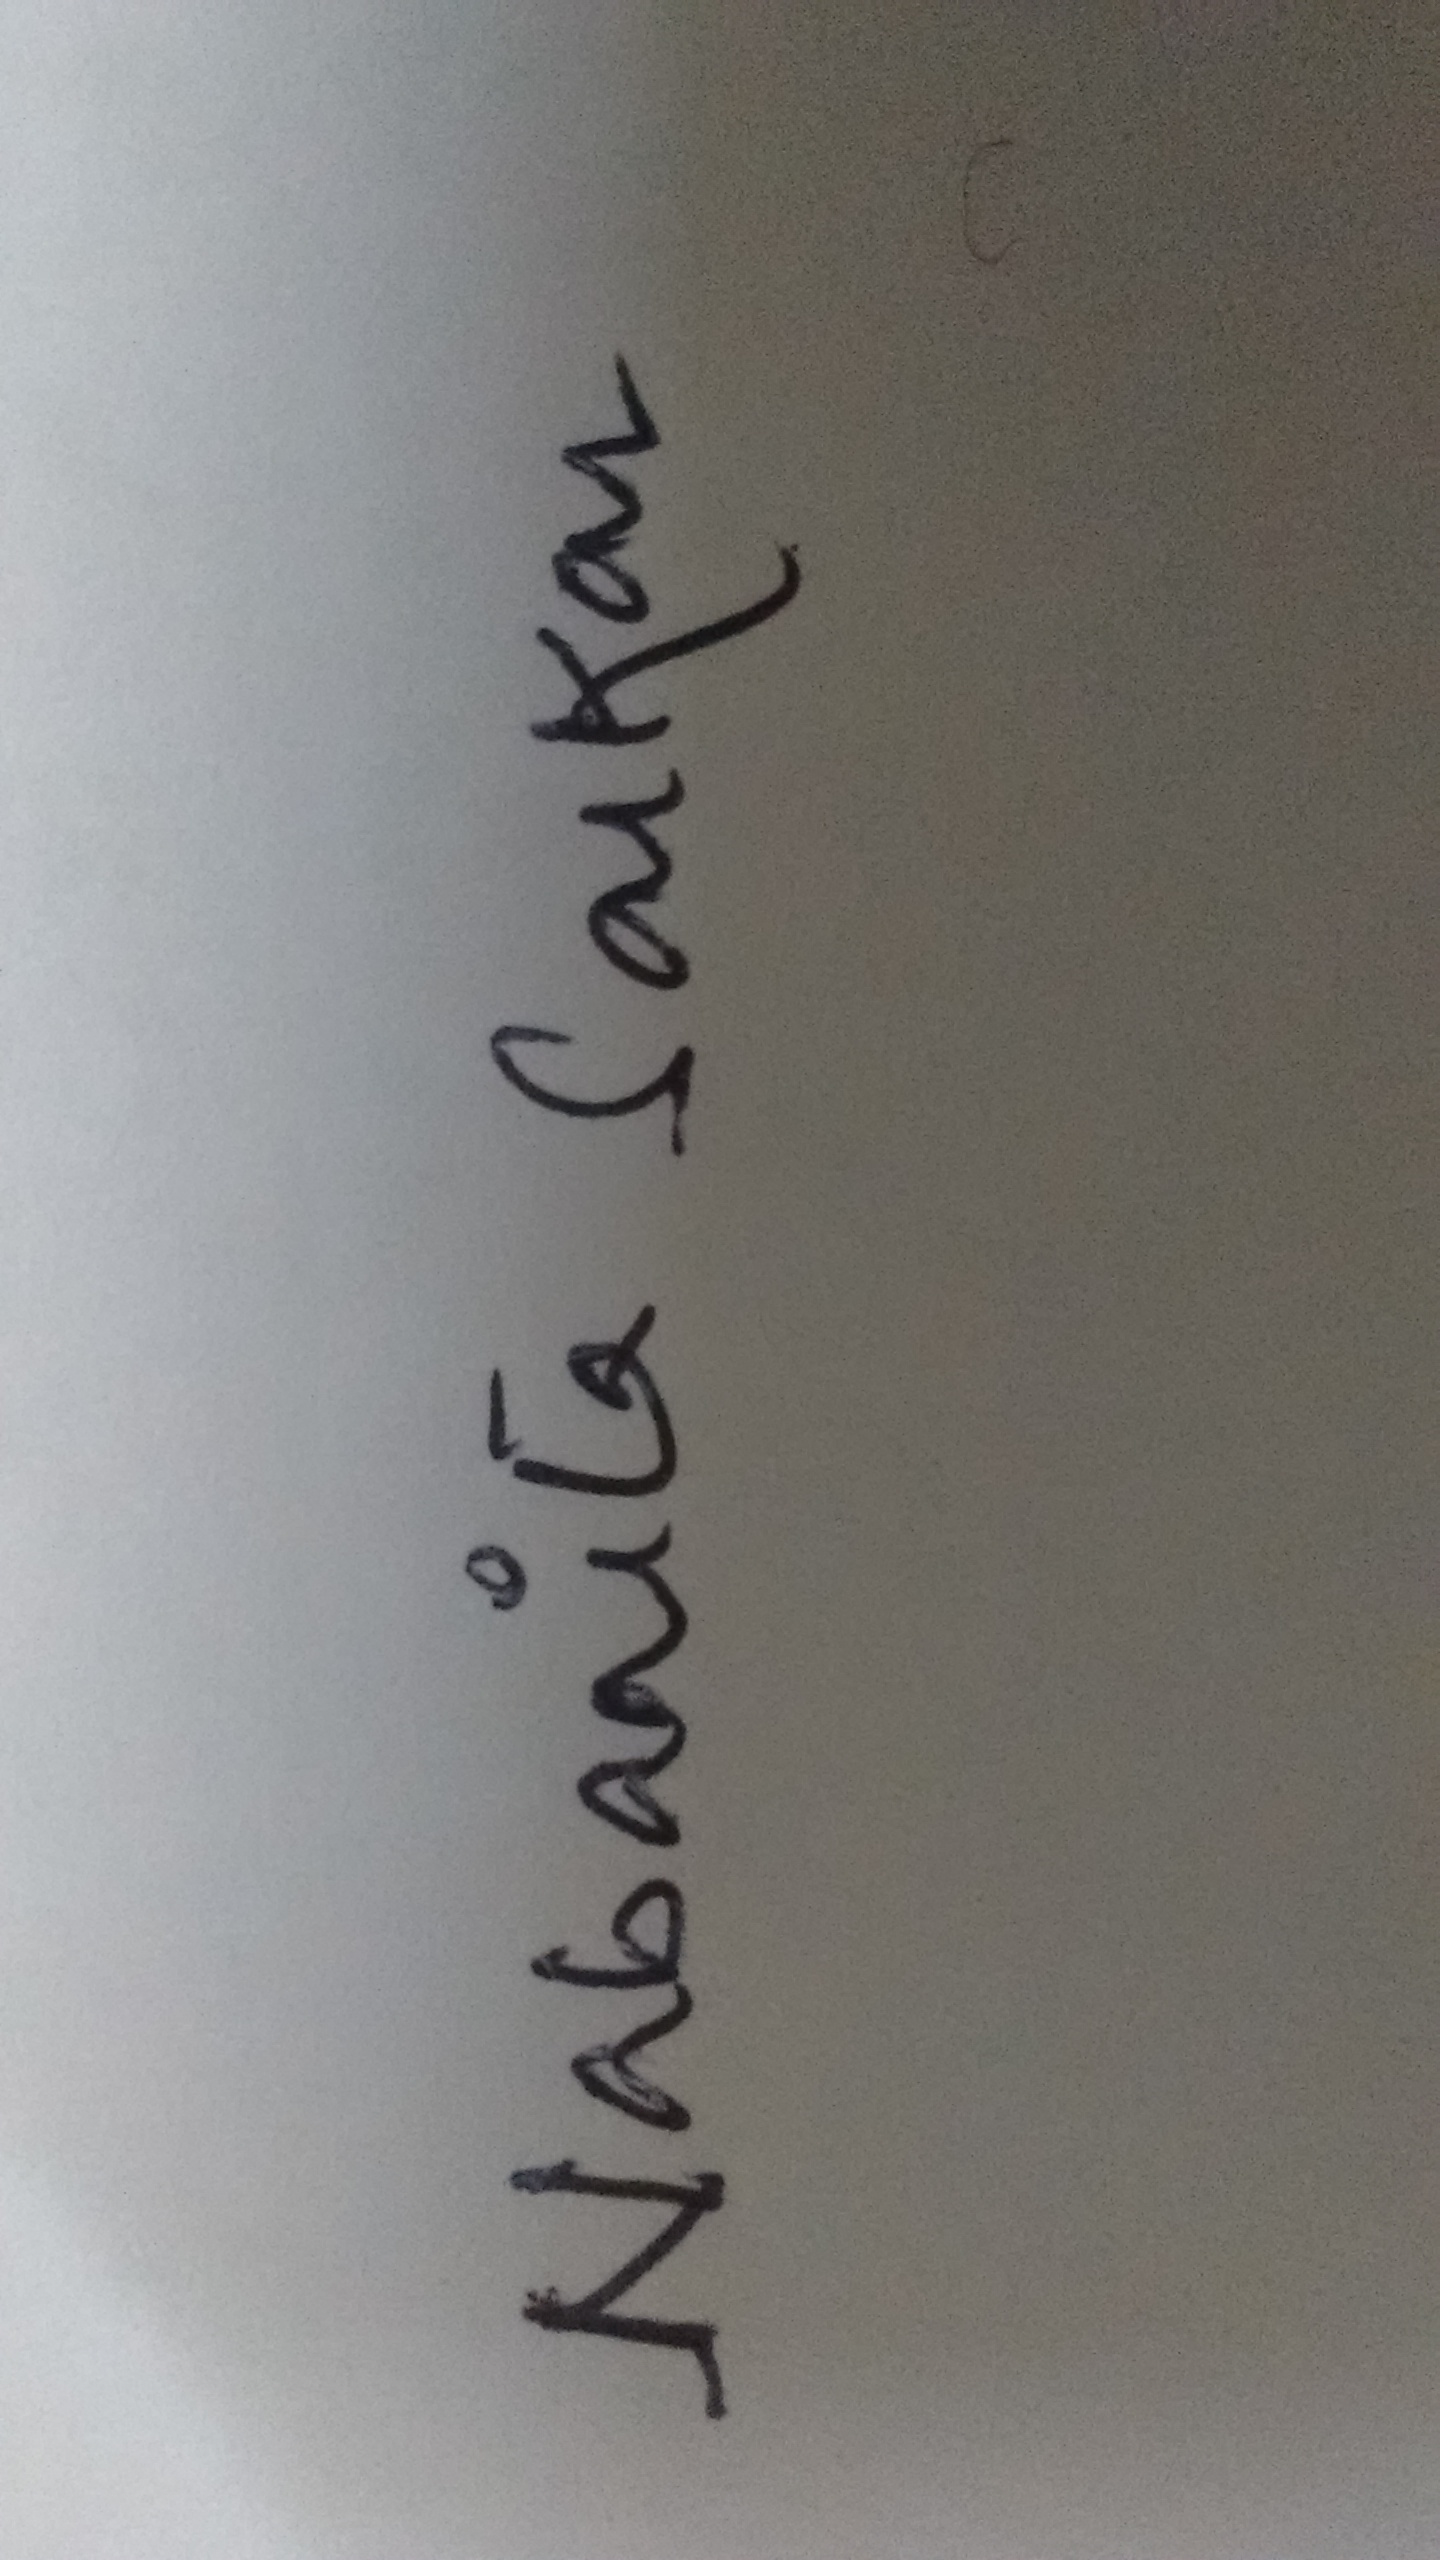 Nabanita Sarkar